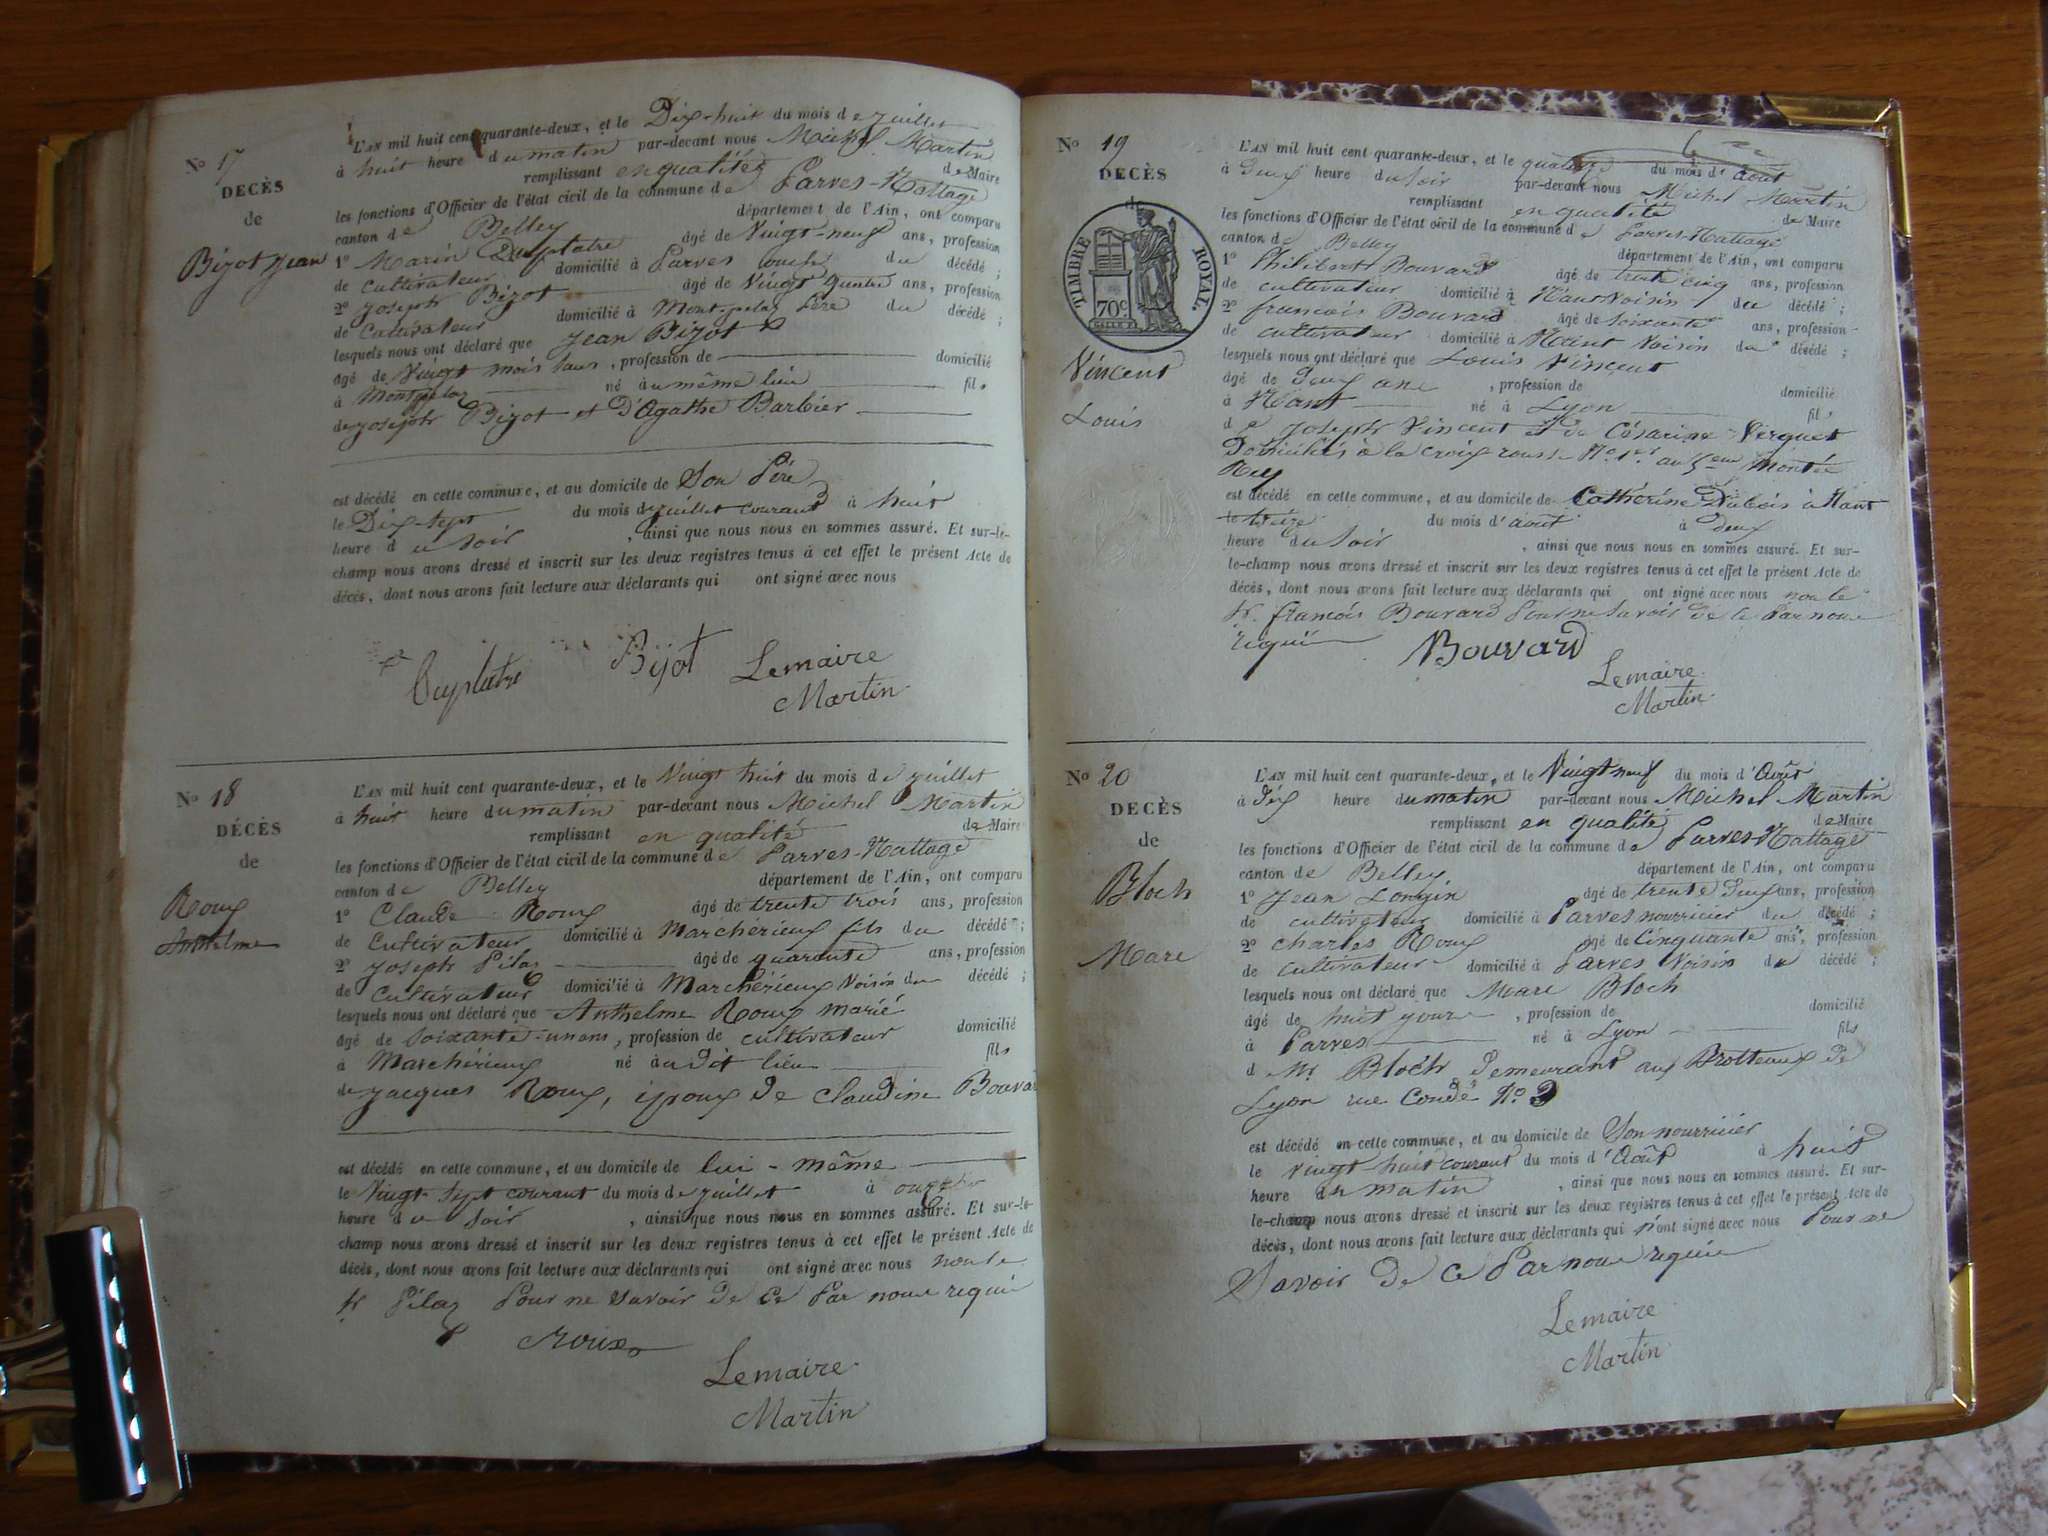 No 17
DECÈS
de
Bizot Jean
L'AN mil huit cent quarante-deux, et le Dix-huit du mois de juillet
à huit heure du matin par-devant nous Michel Martin
remplissant en qualité de Maire
les fonctions d'Officier de l'état civil de la commune de Parves-Nattage
canton de Belley département de l'Ain, ont comparu
1° Marin Duplatre âgé de Vingt-neuf ans, profession
de cultivateur domicilié à Parves oncle du décédé ;
2° Joseph Bizot âgé de Vingt ans, profession
de Cultivateur domicilié à Montpelaz Père du décédé ;
lesquels nous ont déclaré que Jean Bizot
âgé de Vingt mois , profession de domicilié
à Montpelaz né au même lieu fils
de Joseph Bizot et D'Agathe Barbier
est décédé en cette commune, et au domicile de Son Père
le Dix-sept du mois de juillet courant à huit
heure du soir , ainsi que nous nous en sommes assuré. Et sur-le-
champ nous avons dressé et inscrit sur les deux registres tenus à cet effet le présent Acte de
décès, dont nous avons fait lecture aux déclarants qui ont signé avec nous
Duplatre Bijot Lemaire
Martin
No 18
DÉCÈS
de
Roux
Anthelme
L'AN mil huit cent quarante-deux, et le Vingt huit du mois de juillet
à huit heure du matin par-devant nous Michel Martin
remplissant en qualité de Maire
les fonctions d'Officier de l'état civil de la commune de Parves-Nattage
canton de Belley département de l'Ain, ont comparu
1° Claude Roux âgé de trente trois ans, profession
de Cultivateur domicilié à Marchérieux fils du décédé ;
2° Joseph Pilaz âgé de quarante ans, profession
de Cultivateur domicilié à Marchérieux Voisin du décédé ;
lesquels nous ont déclaré que Anthelme Roux marié
âgé de Soixante-un ans, profession de cultivateur domicilié
à Marchérieux né au Dit lieu fils
de Jacques Roux, époux de Claudine Bouva
est décédé en cette commune, et au domicile de lui-même
le Vingt-sept courant du mois de juillet à onze
heure du Soir , ainsi que nous nous en sommes assuré. Et sur-le-
champ nous avons dressé et inscrit sur les deux registres tenus à cet effet le présent Acte de
décès, dont nous avons fait lecture aux déclarants qui ont signé avec nous non le
Sr. Pilaz Pour ne savoir de ce Par nous requis
Roux
Lemaire
Martin
No 19
DECÈS
de
TIMBRE ROYAL.
70c.
Vincent
Louis
L'AN mil huit cent quarante-deux, et le quatorze du mois d'Août
à Deux heure du soir par-devant nous Michel Martin
remplissant en qualité de Maire
les fonctions d'Officier de l'état civil de la commune de Parves-Nattage
canton de Belley département de l'Ain, ont comparu
1° Philibert Bouvard âgé de trente cinq ans, profession
de cultivateur domicilié à Nant Voisin du décédé ;
2° françois Bouvard âgé de Soixante ans, profession
de cultivateur domicilié à Nant Voisin du décédé ;
lesquels nous ont déclaré que Louis Vincent
âgé de Deux ans , profession de domicilié
à Nant né à Lyon fils
de Joseph Vincent et de Césarine Verguet
Domiciliés à la croix rousse No 1er au 5eme Montée
Rey
est décédé en cette commune, et au domicile de Cathérine Dubois à Nant
le treize du mois d'août à Deux
heure du Soir , ainsi que nous nous en sommes assuré. Et sur-
le-champ nous avons dressé et inscrit sur les deux registres tenus à cet effet le présent Acte de
décès, dont nous avons fait lecture aux déclarants qui ont signé avec nous non le
Sr. françois Bouvard Pour ne Savoir de ce Par nous
requis Bouvard
Lemaire
Martin
No 20
DECÈS
de
Bloch
Marc
L'AN mil huit cent quarante-deux, et le Vingt neuf du mois d'Août
à Dix heure du matin par-devant nous Michel Martin
remplissant en qualité de Maire
les fonctions d'Officier de l'état civil de la commune de Parves-Nattage
canton de Belley département de l'Ain, ont comparu
1° Jean Longin âgé de trente Deux ans, profession
de cultivateur domicilié à Parves nourricier du décédé ;
2° Charles Roux âgé de Cinquante ans, profession
de cultivateur domicilié à Parves Voisin du décédé ;
lesquels nous ont déclaré que Marc Bloch
âgé de huit jours , profession de domicilié
à Parves né à Lyon fils
d Mr Bloch Demeurant aux Brotteaux de
Lyon rue Condé No 2
est décédé en cette commune, et au domicile de Son nourricier
le Vingt huit courant du mois d'Août à huit
heure du matin , ainsi que nous nous en sommes assuré. Et sur-
le-champ nous avons dressé et inscrit sur les deux registres tenus à cet effet le présent Acte de
décès, dont nous avons fait lecture aux déclarants qui n'ont signé avec nous Pour ne
Savoir de ce Par nous requis
Lemaire
Martin